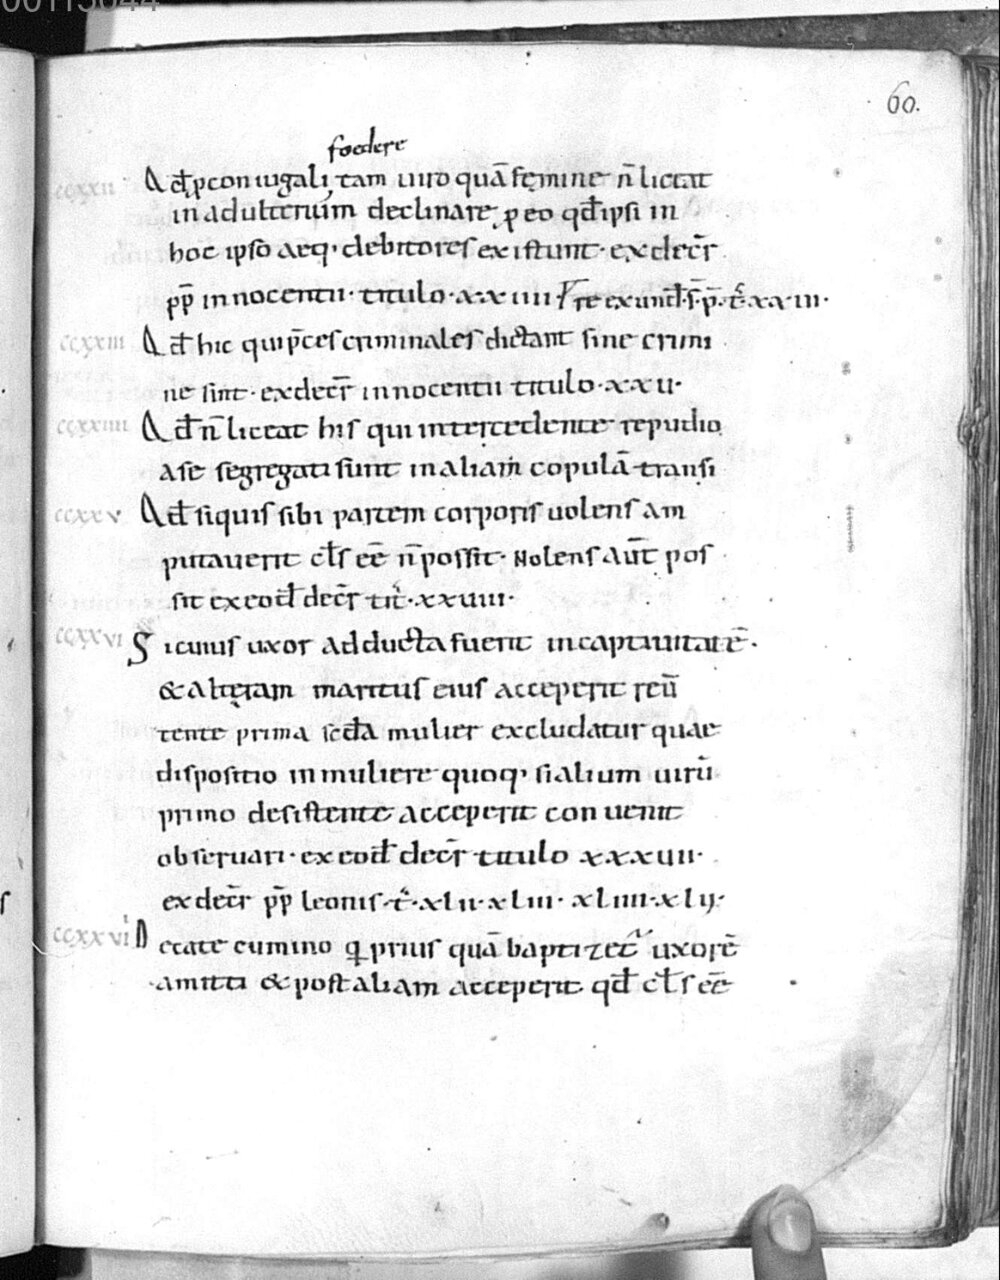 60.
foedere
ccxxii Qđ p coniugali tam uiro quā femine n̄ liceat
in adulterium declinare, p eo qđ ipsi in
hoc ipso aeq; debitores existunt· ex decr̄
pp̄ innocentii· titulo·xxiiii
ccxxiii Qđ hic qui p̄ces criminales dictant sine crimi
ne sint· ex decr̄ innocentii titulo·xxu·
ccxxiiii Qđ n̄ liceat his qui intercedente repudio
a se segregati sunt in aliam copulā transi
ccxxv Qđ siquis sibi partem corporis uolens am
putauerit cl̄s eē n̄ possit· Nolens aūt pos
sit ex eođ decr̄ tit̄·xxuiii·
ccxxvi Sicuius uxor adducta fuerit in captiuitatē·
& alteram maritus eius acceperit reū
tente prima scđa mulier excludatur quae
dispositio in muliere quoq; si alium uirū
primo desistente acceperit conuenit
obseruari· ex eođ decr̄ titulo xxxuii·
ex decr̄ pp̄ leonis·t̄·xlii·xliii·xliiii·xlu·
ccxxvii De cate cumino q prius quā baptizet uxorē
amitti & post aliam acceperit qđ cl̄s eē